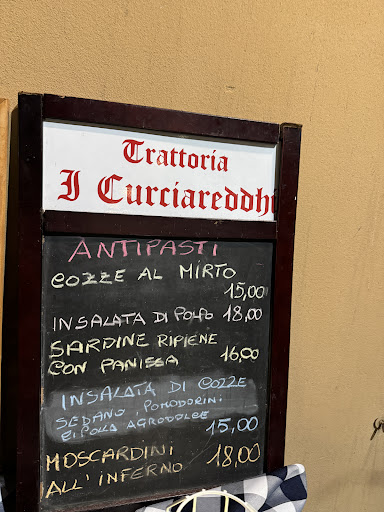 Trattoria
I Curciareddhi
ANTIPASTI
COZZE AL MIRTO
15,00
INSALATA DI POLPO 18,00
SARDINE RIPIENE
CON PANISSA 16,00
INSALATA DI COZZE
SEDANO, POMODORINI
CIPOLLA AGRODOLCE
15,00
MOSCARDINI
ALL'INFERNO 18,00